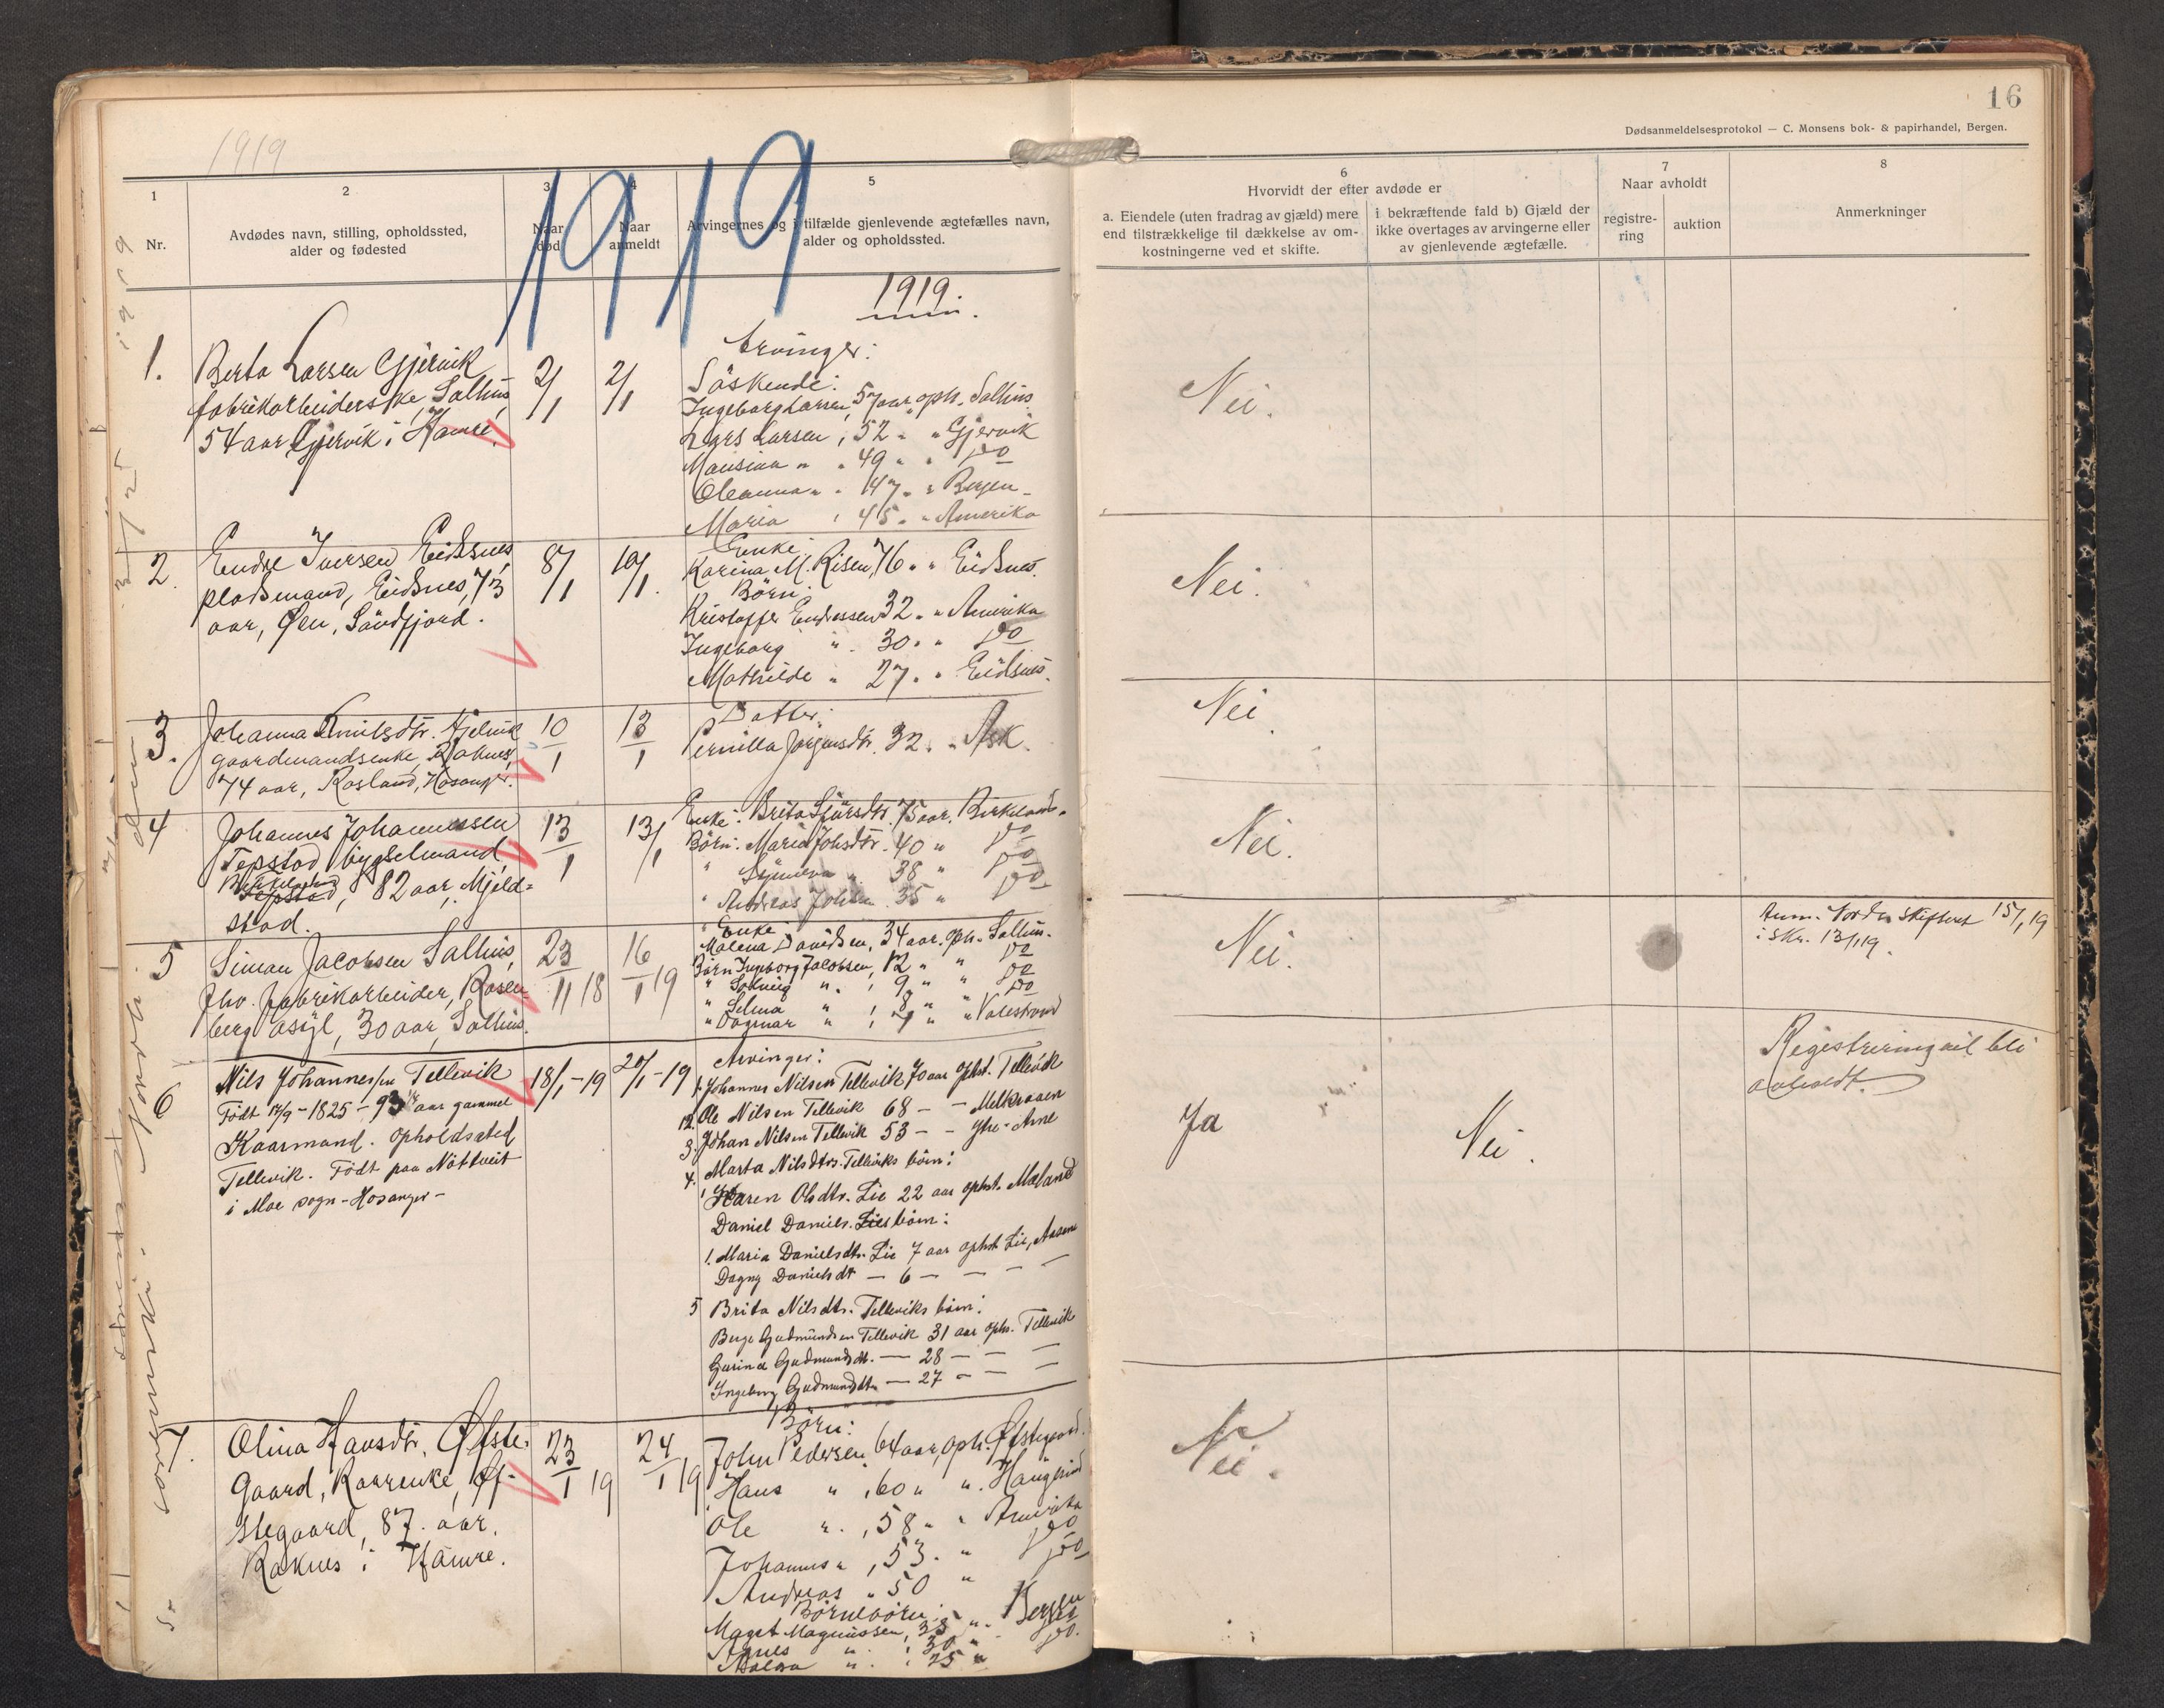 1919
1919
16
Dødsanmeldelsesprotokol — C. Monsens bok- & papirhandel, Bergen.
1
Nr.
2
Avdødes navn, stilling, opholdssted,
alder og fødested
3
Naar
død
4
Naar
anmeldt
5
Arvingernes og i tilfælde gjenlevende ægtefælles navn,
alder og opholdssted.
6
Hvorvidt der efter avdøde er
a. Eiendele (uten fradrag av gjæld) mere
end tilstrækkelige til dækkelse av om-
kostningerne ved et skifte.
i bekræftende fald b) Gjæld der
ikke overtages av arvingerne eller
av gjenlevende ægtefælle.
7
Naar avholdt
registre-
ring
auktion
8
Anmerkninger
1919.
1.
Berta Larsen Gjervik
fabrikarbeiderske, Salhus,
54 aar Gjervik i Hamre.
2/1
2/1
Arvinger:
Söskende:
Ingeborg Larsen, 57 aar, oph. Salhus.
Lars Larsen, 52 " " Gjervik
Mausina " " 49 " " do
Oleanna " " 47 " " Bergen
Maria , 45 " " Amerika
Nei.
2.
Endre Iversen Eidsnes,
pladsmand, Eidsnes, 73
aar, Øen, Söndfjord.
8/1
10/1.
Enke:
Karina M. Risen, 76 " " Eidsnes.
Börn:
Kristoffer Endresen 32 " " Amerika
Ingeborg " 30 " " do
Mathilde " 27 " " Eidsnes.
Nei.
3.
Johanna Knutsdtr. Hjelvik
gaardmandsenke, Raknes,
74 aar, Rosland, Hosanger.
10/1
13/1
Datter:
Pernilla Jørgensdtr. 32 " " Ask.
Nei
4
Johannes Johannessen
Tepstad bygselmand,
Birkeland
Tepstad, 82 aar, Mjeld-
stad.
13/1
13/1
Enke: Brita Sjursdtr. 75 aar, Birkeland.
Börn: Maria Johsdtr. 40 " do
" Synneva " 38 " do
" Andreas Johsen 35 " do
Nei.
5
Simon Jacobsen Salhus,
fhv. fabrikarbeider, Rosen-
berg asyl, 30 aar, Salhus.
23/11 18
16/1 19
Enke
Malena Davidsen, 34 aar, oph. Salhus.
Börn Ingeborg Jacobsen, 12 " " do
" Solveig " , 9 " " do
" Selma " , 8 " " do
" Dagmar " , 7 " " Valestrand
Nei.
Anm. Nordre skifteret 15/1 19
i Skr. 13/1 19.
6
Nils Johannessen Tellevik
Födt 17/9 - 1825 - 93 1/4 aar gammel
Kaarmand. Opholdssted
Tellevik. Födt paa Nöttveit
i Moe sogn - Hosanger -
18/1 - 19
20/1 - 19
Arvinger:
1. Johannes Nilsen Tellevik 70 aar ophst. Tellevik
2. Ole Nilsen Tellevik 68 — — Melkraaen
3. Johan Nilsen Tellevik 53 — — Ytre-Arne
4. Marta Nilsdtrs. Telleviks börn:
1. Karen Olsdtr. Lie 22 aar ophst. Mæland
Daniel Daniels. Lies börn:
1. Maria Danielsdtr. Lie 7 aar ophst Lie, Aasane
Dagny Danielsdt — 6 — — — —
5 Brita Nilsdtr. Telleviks börn:
Berge Gudmundsen Tellevik 31 aar ophs. Tellevik
Gurina Gudmundsdt. — 28 — — —
Ingeborg Gudmundsdtr — 27 — — —
Ja
Nei.
Registrering vil bli
avholdt.
7.
Olina Hansdtr. Øfste-
gaard, Kaarenke, Øf-
stegaard, 87 aar.
Raknes i Hamre.
23/1 19
24/1 19
Börn:
John Pedersen 64 aar, oph. Øfstegaard.
Hans " , 60 " "
Ole " , 58 " " Amerika
Johannes " , 53 " " do
Andreas " 50 " do
Börnebörn:
Maget Magnussen, 33 " " Bergen
Agnes " , 30 " do.
" , 25 "
Nei.